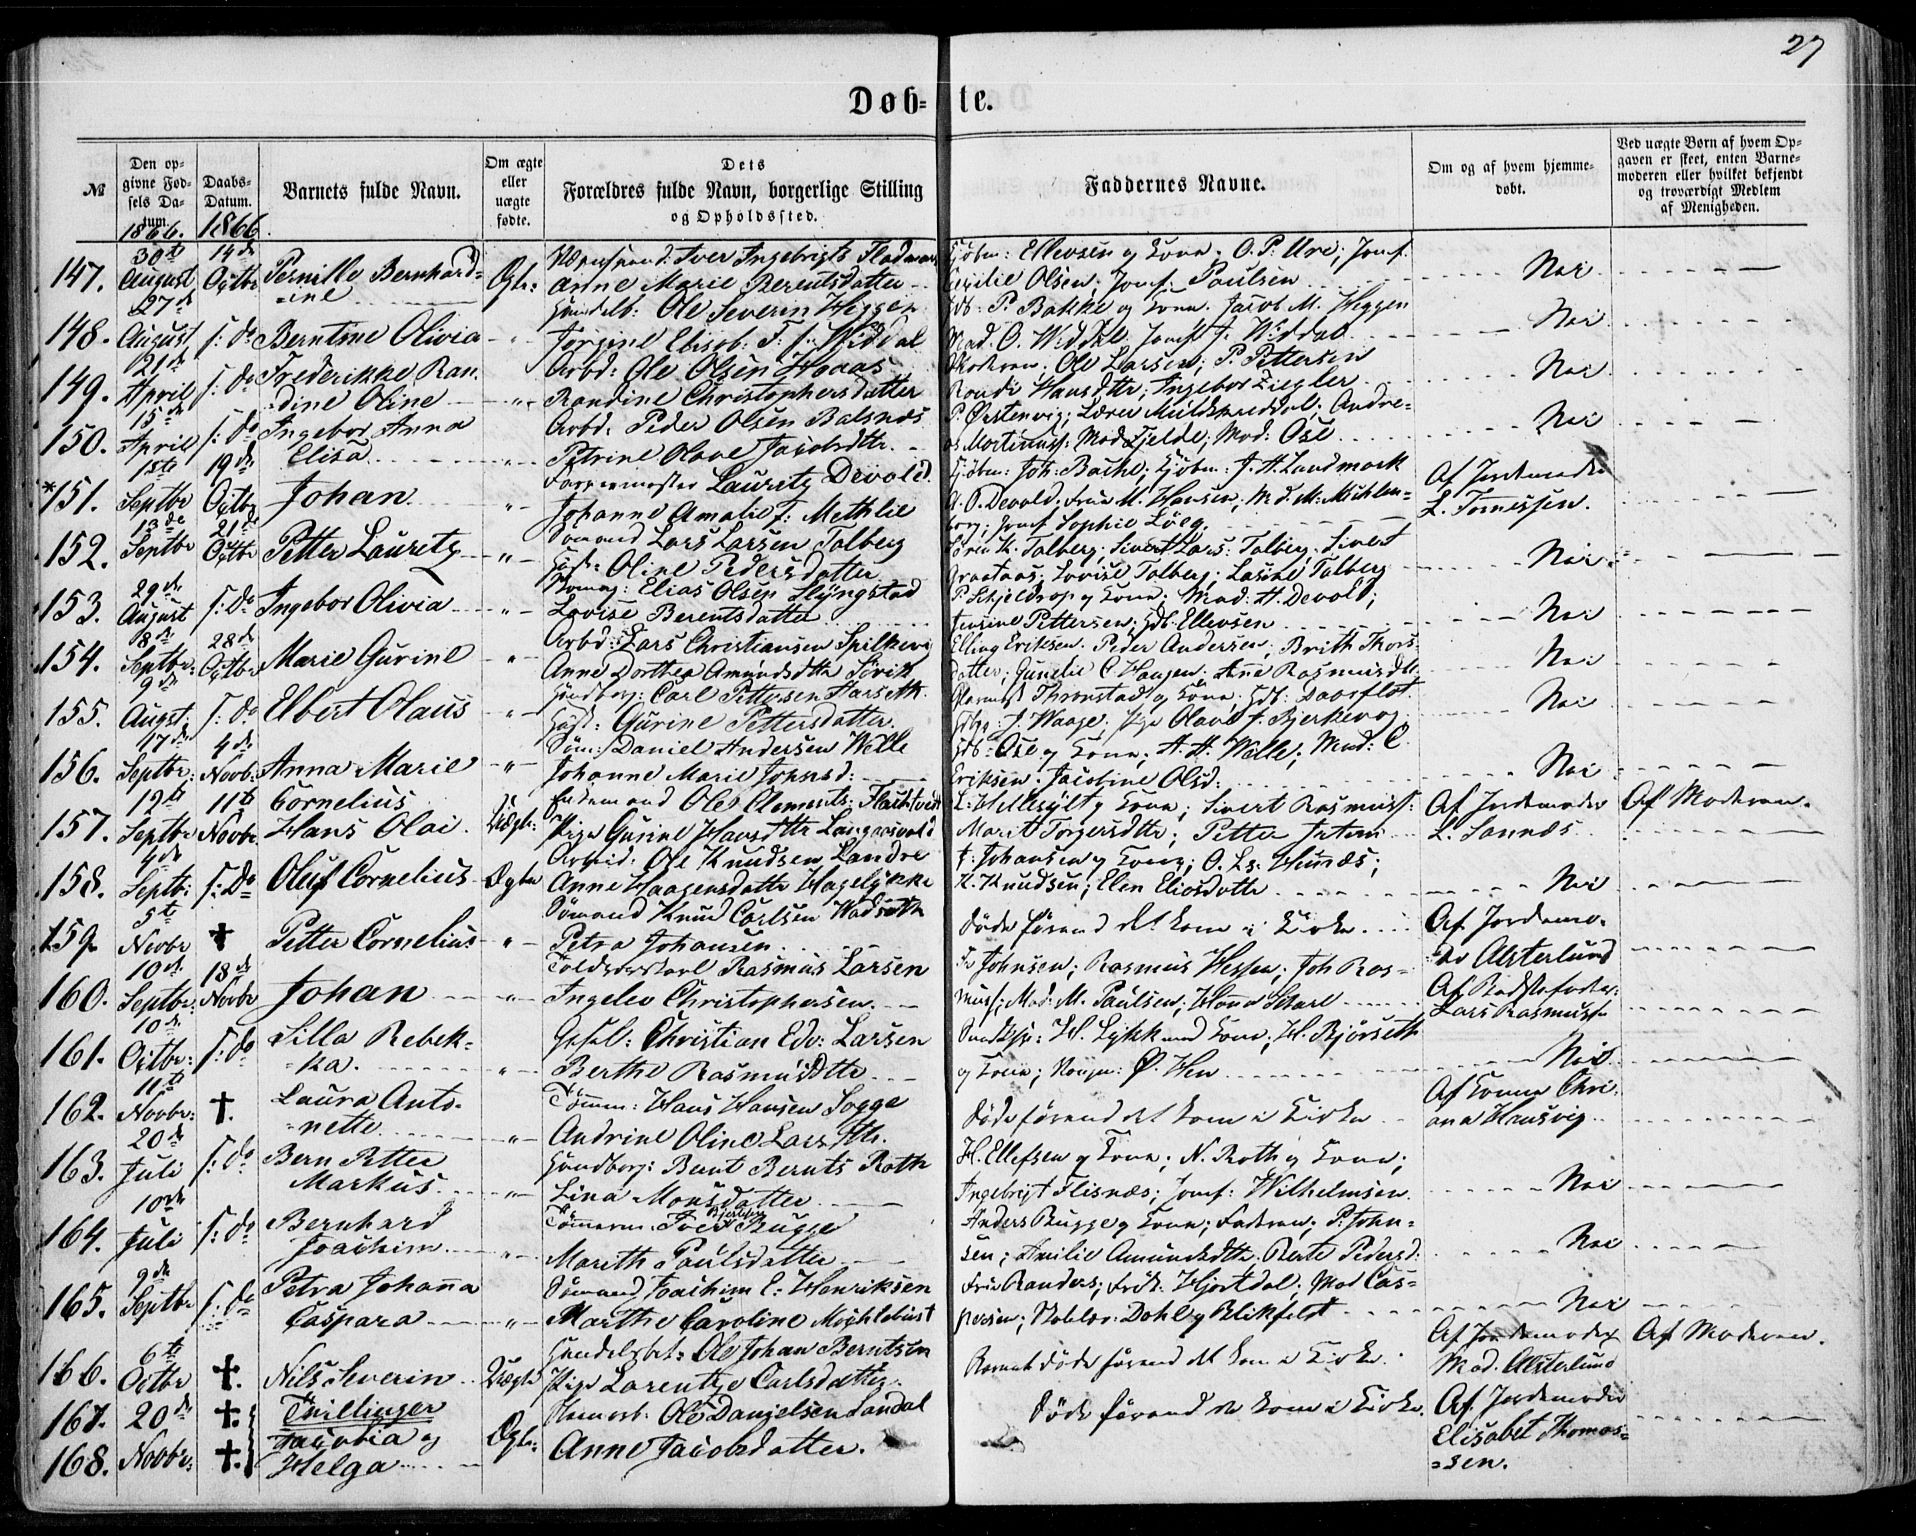 27
Døb-te.
№
Den opgivne Fødsels Datum.
1866.
Daabs-Datum.
1866
Barnets fulde Navn.
Om ægte eller uægte fødte.
Dets
Forældres fulde Navn, borgerlige Stilling
og Opholdssted.
Faddernes Navne.
Om og af hvem hjemmedobt.
Ved uægte Børn af hvem Opgaven er skeet, enten Barnemoderen eller hvilket bekjendt og troværdigt Medlem af Menigheden.
147. 30te August 14de Octbr Pernille Bernhardine Ægte: Iver Ingebrigts
Anne Marie Berentsdatter
Ellevsen og Kone; O. P. Ure; Jomf.
Olsen; Jomf: Paulsen Nei
148. 27de August s: Do Berntine Olivia " Ole Severin Heggen
Jørgine Elisab: F: f: Widdal
P. Bakke og Kone. Jacob M. Heggen
Mad. O. Widdal Jomf J. Widdal Nei
149. 21de April s: Do Frederikke Randine Oline " Arbd: Ole Olsen Haaas
Randine Christophersdatter
Ole Larsen; P. Pettersen
Randi Hansdttr; Ingebor Ziegler Nei
150. 15de April s: Do Ingebor Anna Elisa " Arbd: Peder Olsen Balsnæs
Petrine Olave Jacobsdttr.
P. Østenvig; Lærer Muldskreddal; Andreas Martinuss: Mad Fjelde; Mad: Ose Nei
*151. 1ste Septbr 19de Octbr Johan " Lauritz Devold.
Johanne Amalie f: Methlie
Kjøbm: Joh: Bache; Kjøbm: J. A. Landmark
A. O. Devold; Frue M. Hansen; M: Muhlenborg; Jomf Sophie Løeg.
Af Jordemoder L. Tønnessen.
152. 13de Septbr 21de Octbr Petter Lauritz " Sømand Lars Larsen Talberg
Oline Pedersdatter
Søren K. Talberg. Sivert Lars: Talberg; Sivert
Graataas; Lovise Talberg; Lasine Talberg Nei
153. 29de August s: Do Ingebor Olivia " Elias Olsen Slyngstad
Lovise Berentsdatter
P. Schjeldrop og Kone; Mad: H. Devold;
Jensine Pettersen; Ellevsen Nei
154. 8de Septbr: 28de Octbr Marie Gurine " Arbd: Lars Christiansen Spilkevig
Anne Dorthea Amundsdttr Søvik
Elling Eriksen. Peder Andersen; Brith Thorsdatter; Gunelie C Haugen; Anne Rasmusdtr Nei
155. 9de Augst. s: Do Elbert Olaus " Carl Pettersen Harseth.
Gurine Pettersdatter.
Thronstad og Kone; Daarflot
J. Waage. Pige Olave J. Bjerkevog Nei
156. 17de Septbr: 4de Novb: Anna Marie " Søm: Daniel Andersen Welle
Johanne Marie Johnsd:
Ose og Kone; A. A. Welle; Mad: C.
Eriksen. Jacobine Olsd. Nei
157. 19te Septbr 11te Novbr Cornelius Hans Olai. Uægte: Enkemand Ole Clements:
Pige Gurine Hansdttr
L: Hellesylt og Kone; Sivert Rasmuss:
Marit Torgersdtr; Petter
Af Jordemoder L. Sonnæs
Af Moderen.
158. 4de Septb: s: Do Oluf Cornelius Ægte Arbeid: Ole Knudsen Landre
Anne Haagensdattr Hagelykke
J: Johansen og Kone; O. Ls: Humnæs;
K. Knudsen; Elen Eliasdatte Nei
159. 5te Novbr † Petter Cornelius " Sømand Knud Carlsen Wadseth
Petra Johansen.
Døde førend det kom i Kirke.
Af Jordemodr Alsterlund
160. 10de Septbr: 18de Novbr Johan " Rasmus Larsen
Ingelev Christophersen.
Johnsen; Rasmus Hessen; Joh Rasmuss; Mad: M. Paulsen; Hanna Skarl
Lars Rasmuss
161. 10de Octbr: s: do Silla Rebekka. " Gesel: Christian Edv: Larsen
Berthe Rasmusdttr
H. Lykk med Kone; H. Bjørseth
og Kone; Ø. Hen Nei
162. 11te Novbr: †. Laura Antonette " Tømm: Hans Hansen Sogge
Andrine Oline Larsdttr.
Døde førend det kom i Kirke
Af Konen Chriana Hansvig
163. 20de Juli s: do Bern Petter Markus. " Bernt Bernts Roth
Lina Monsdatter
H. Ellefsen og Kone; N. Roth og Kone;
Ingebrigt Flisnæs; Jomf: Wilhelmsen. Nei
164. 10de Juli s: do Bernhard Joachim " Tømerm. Iver Bugge
Mareth Paulsdatter
Anders Bugge og Kone; Faderen; P. Johnsen; Amilie Amundsdttr; Berte Pedersd: Nei
165. 9de Septbr s: do Petra Johanna Caspara " Sømand Joachim E: Henriksen
Marthe Caroline Møghlebust
Frue Randers; Frk. Hjortdal; Mad Caspersen; Dahl og Blikfeldt Nei
166. 6te Octbr †. Nils Severin Uægte Ole Johan Berntsen
Pige Larentze Carlsdatter.
Barnet døde førend det kom i Kirke.
Af Jordemoder Mad. Alsterlund
Af Moderen.
167. 20de Novbr: †. Tvillinger Jacobia og
168. †. Helga Ægte: Ole Danjelsen Sandal
Anne Jacobsdatter.
Døde førend de kom i Kirke.
Af Jordemoder Elisabet Thomassen.